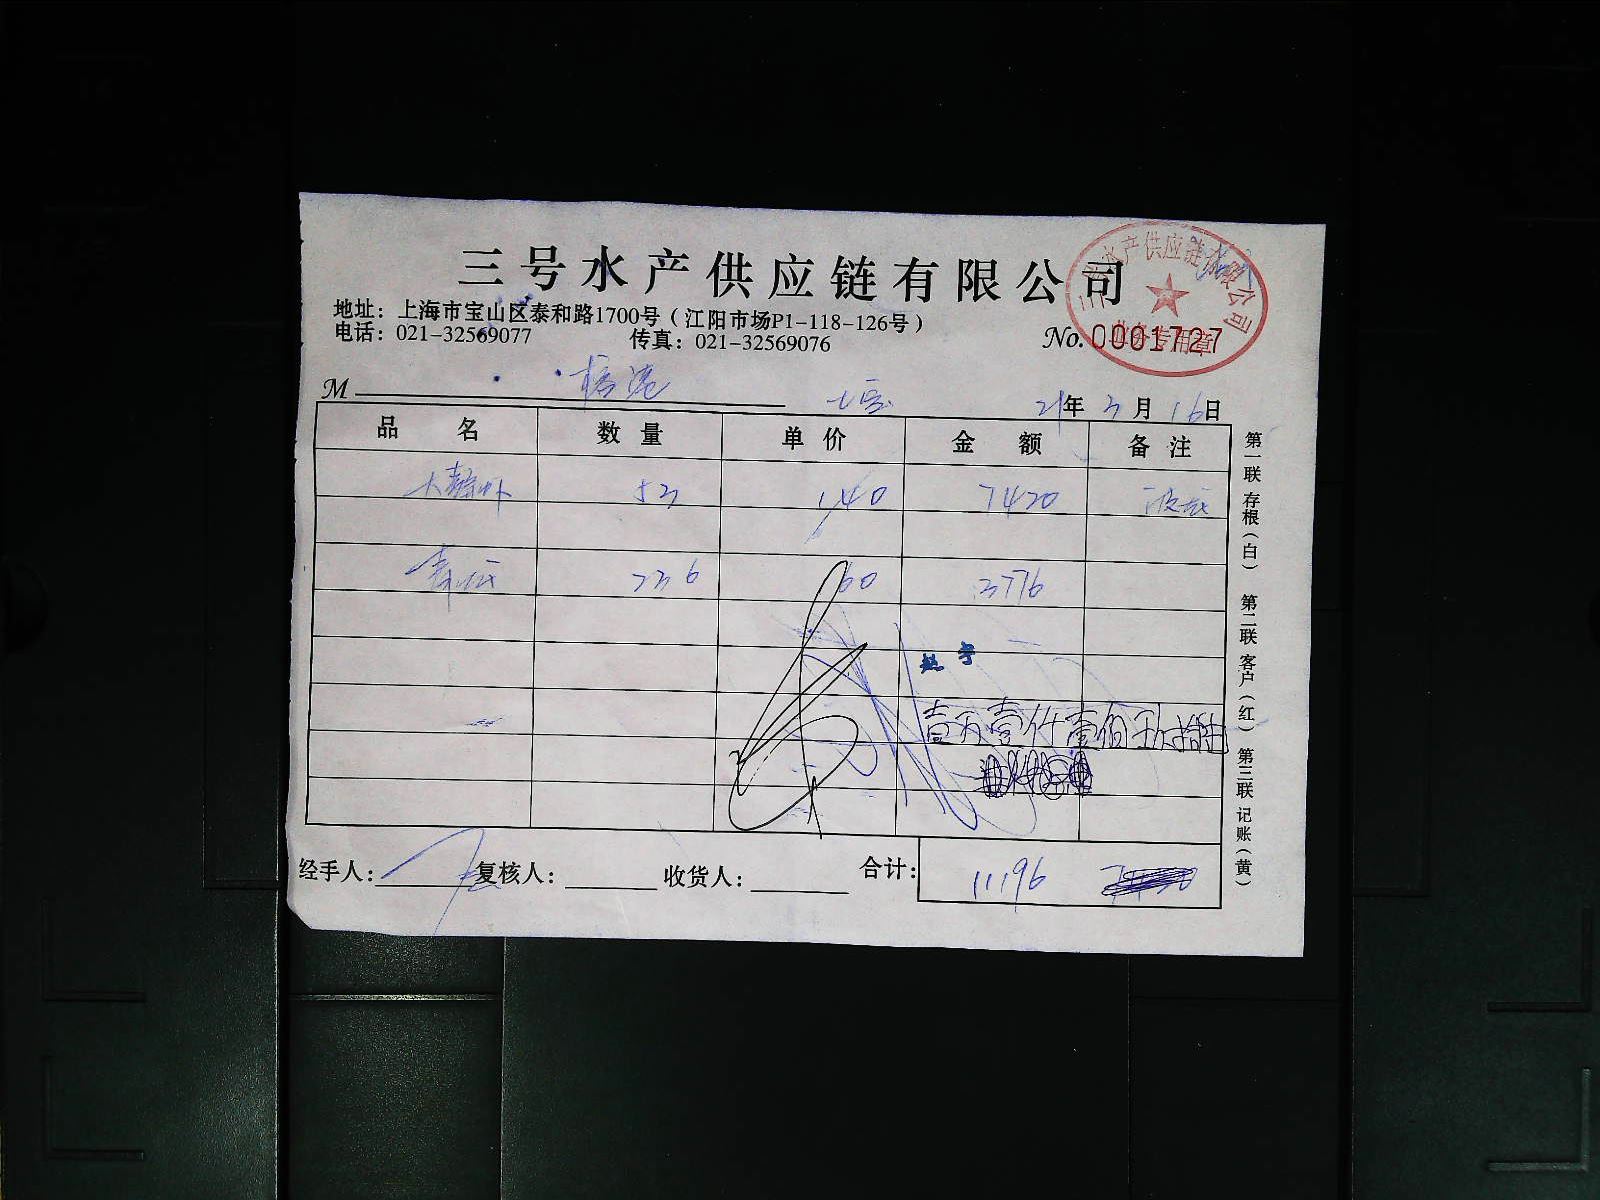 三号水产供应链有限公司
地址：上海市宝山区泰和路1700号（江阳市场P1-118-126号）
电话：021-32569077 传真：021-32569076
No. 0001727
三号水产供应链有限公司
业务专用章
M
21年 3月 16日
品名 数量 单价 金额 备注
53 140 7420
236 60 3776
壹万壹仟壹佰
经手人： 复核人： 收货人： 合计： 11196
第一联 存根（白） 第二联 客户（红） 第三联 记账（黄）